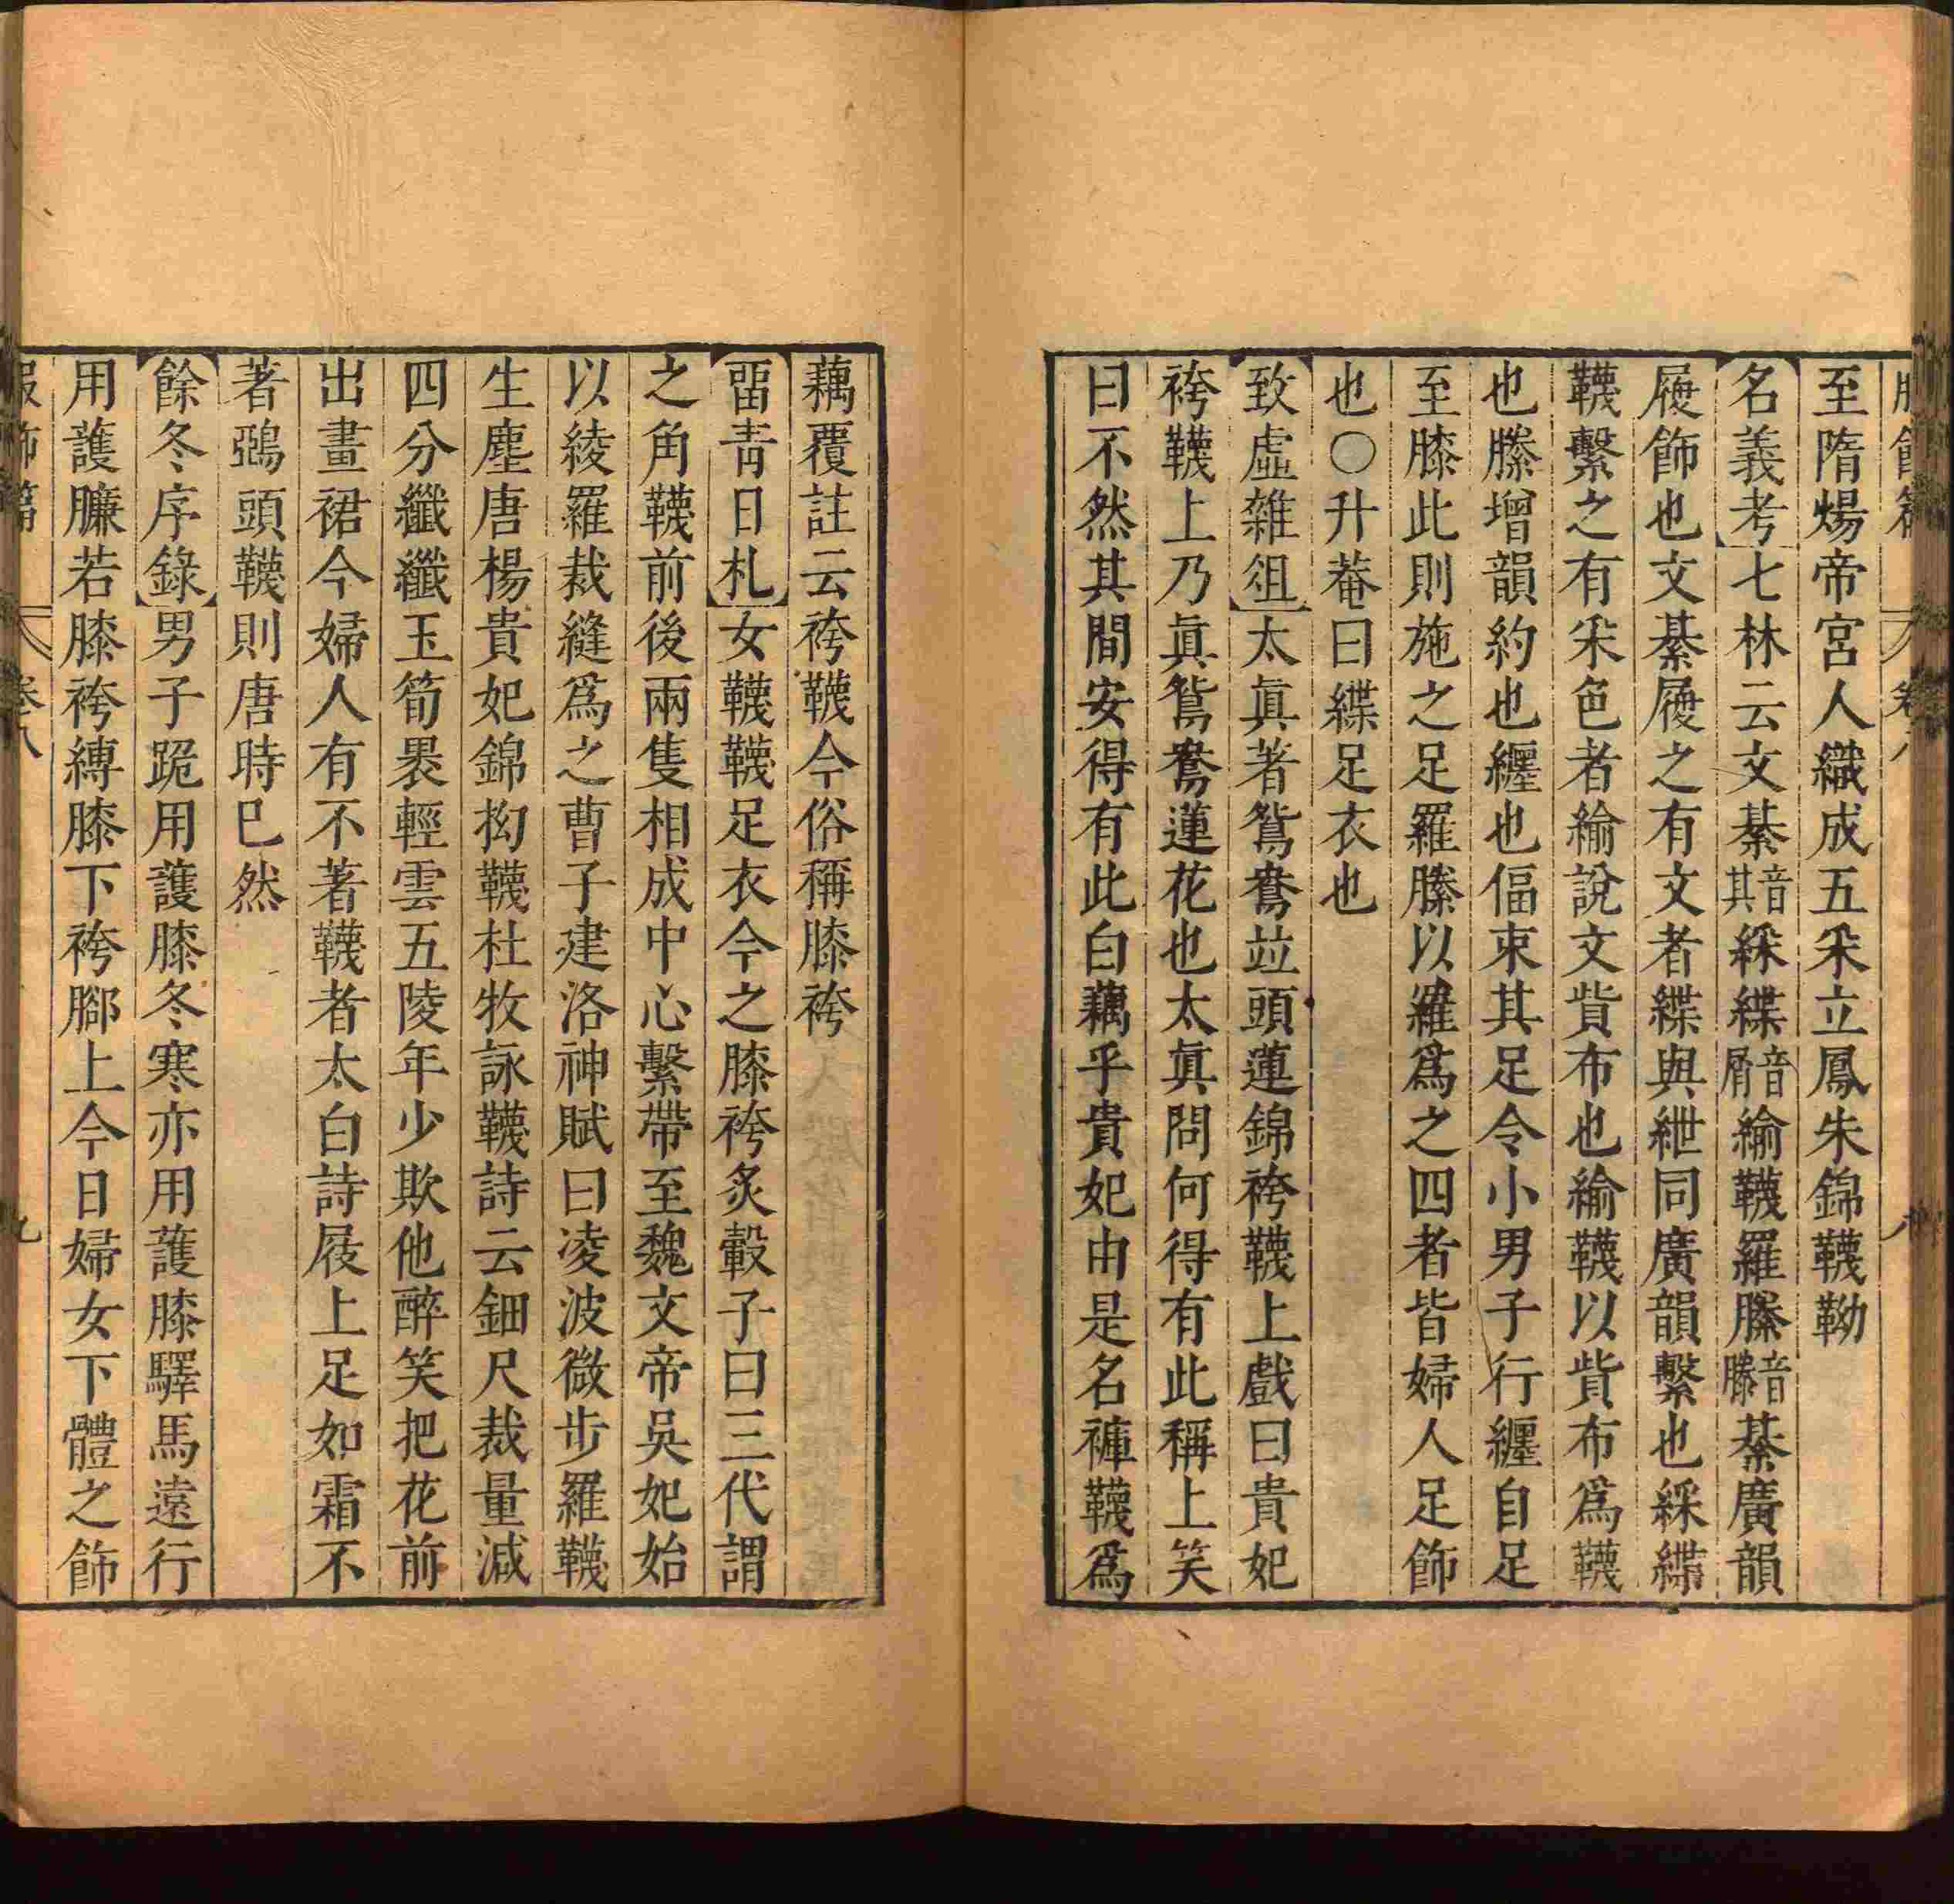 服飾篇 卷八 八
至隋煬帝宮人織成五采立鳳朱錦韈靿
名義考七林云文綦音其綵緤音屑緰韈羅縢音滕綦廣韻
履飾也文綦履之有文者緤與紲同廣韻繫也綵緤
韈繫之有采色者緰說文貲布也緰韈以貲布爲韈
也縢增韻約也纏也偪束其足令小男子行纏自足
至膝此則施之足羅縢以羅爲之四者皆婦人足飾
也○升菴曰緤足衣也
致虛雜俎太眞著鴛鴦竝頭蓮錦袴韈上戲曰貴妃
袴韈上乃眞鴛鴦蓮花也太眞問何得有此稱上笑
曰不然其間安得有此白藕乎貴妃由是名褲韈爲
藕覆註云袴韈今俗稱膝袴
畱青日札女韈韈足衣今之膝袴炙轂子曰三代謂
之角韈前後兩隻相成中心繫帶至魏文帝吳妃始
以綾羅裁縫爲之曹子建洛神賦曰凌波微步羅韈
生塵唐楊貴妃錦抝韈杜牧詠韈詩云鈿尺裁量減
四分纖纖玉筍褁輕雲五陵年少欺他醉笑把花前
出畫裙今婦人有不著韈者太白詩屐上足如霜不
著鵶頭韈則唐時巳然
餘冬序錄男子跪用護膝冬寒亦用護膝驛馬遠行
用護臁若膝袴縳膝下袴腳上今日婦女下體之飾
服飾篇 卷八 九